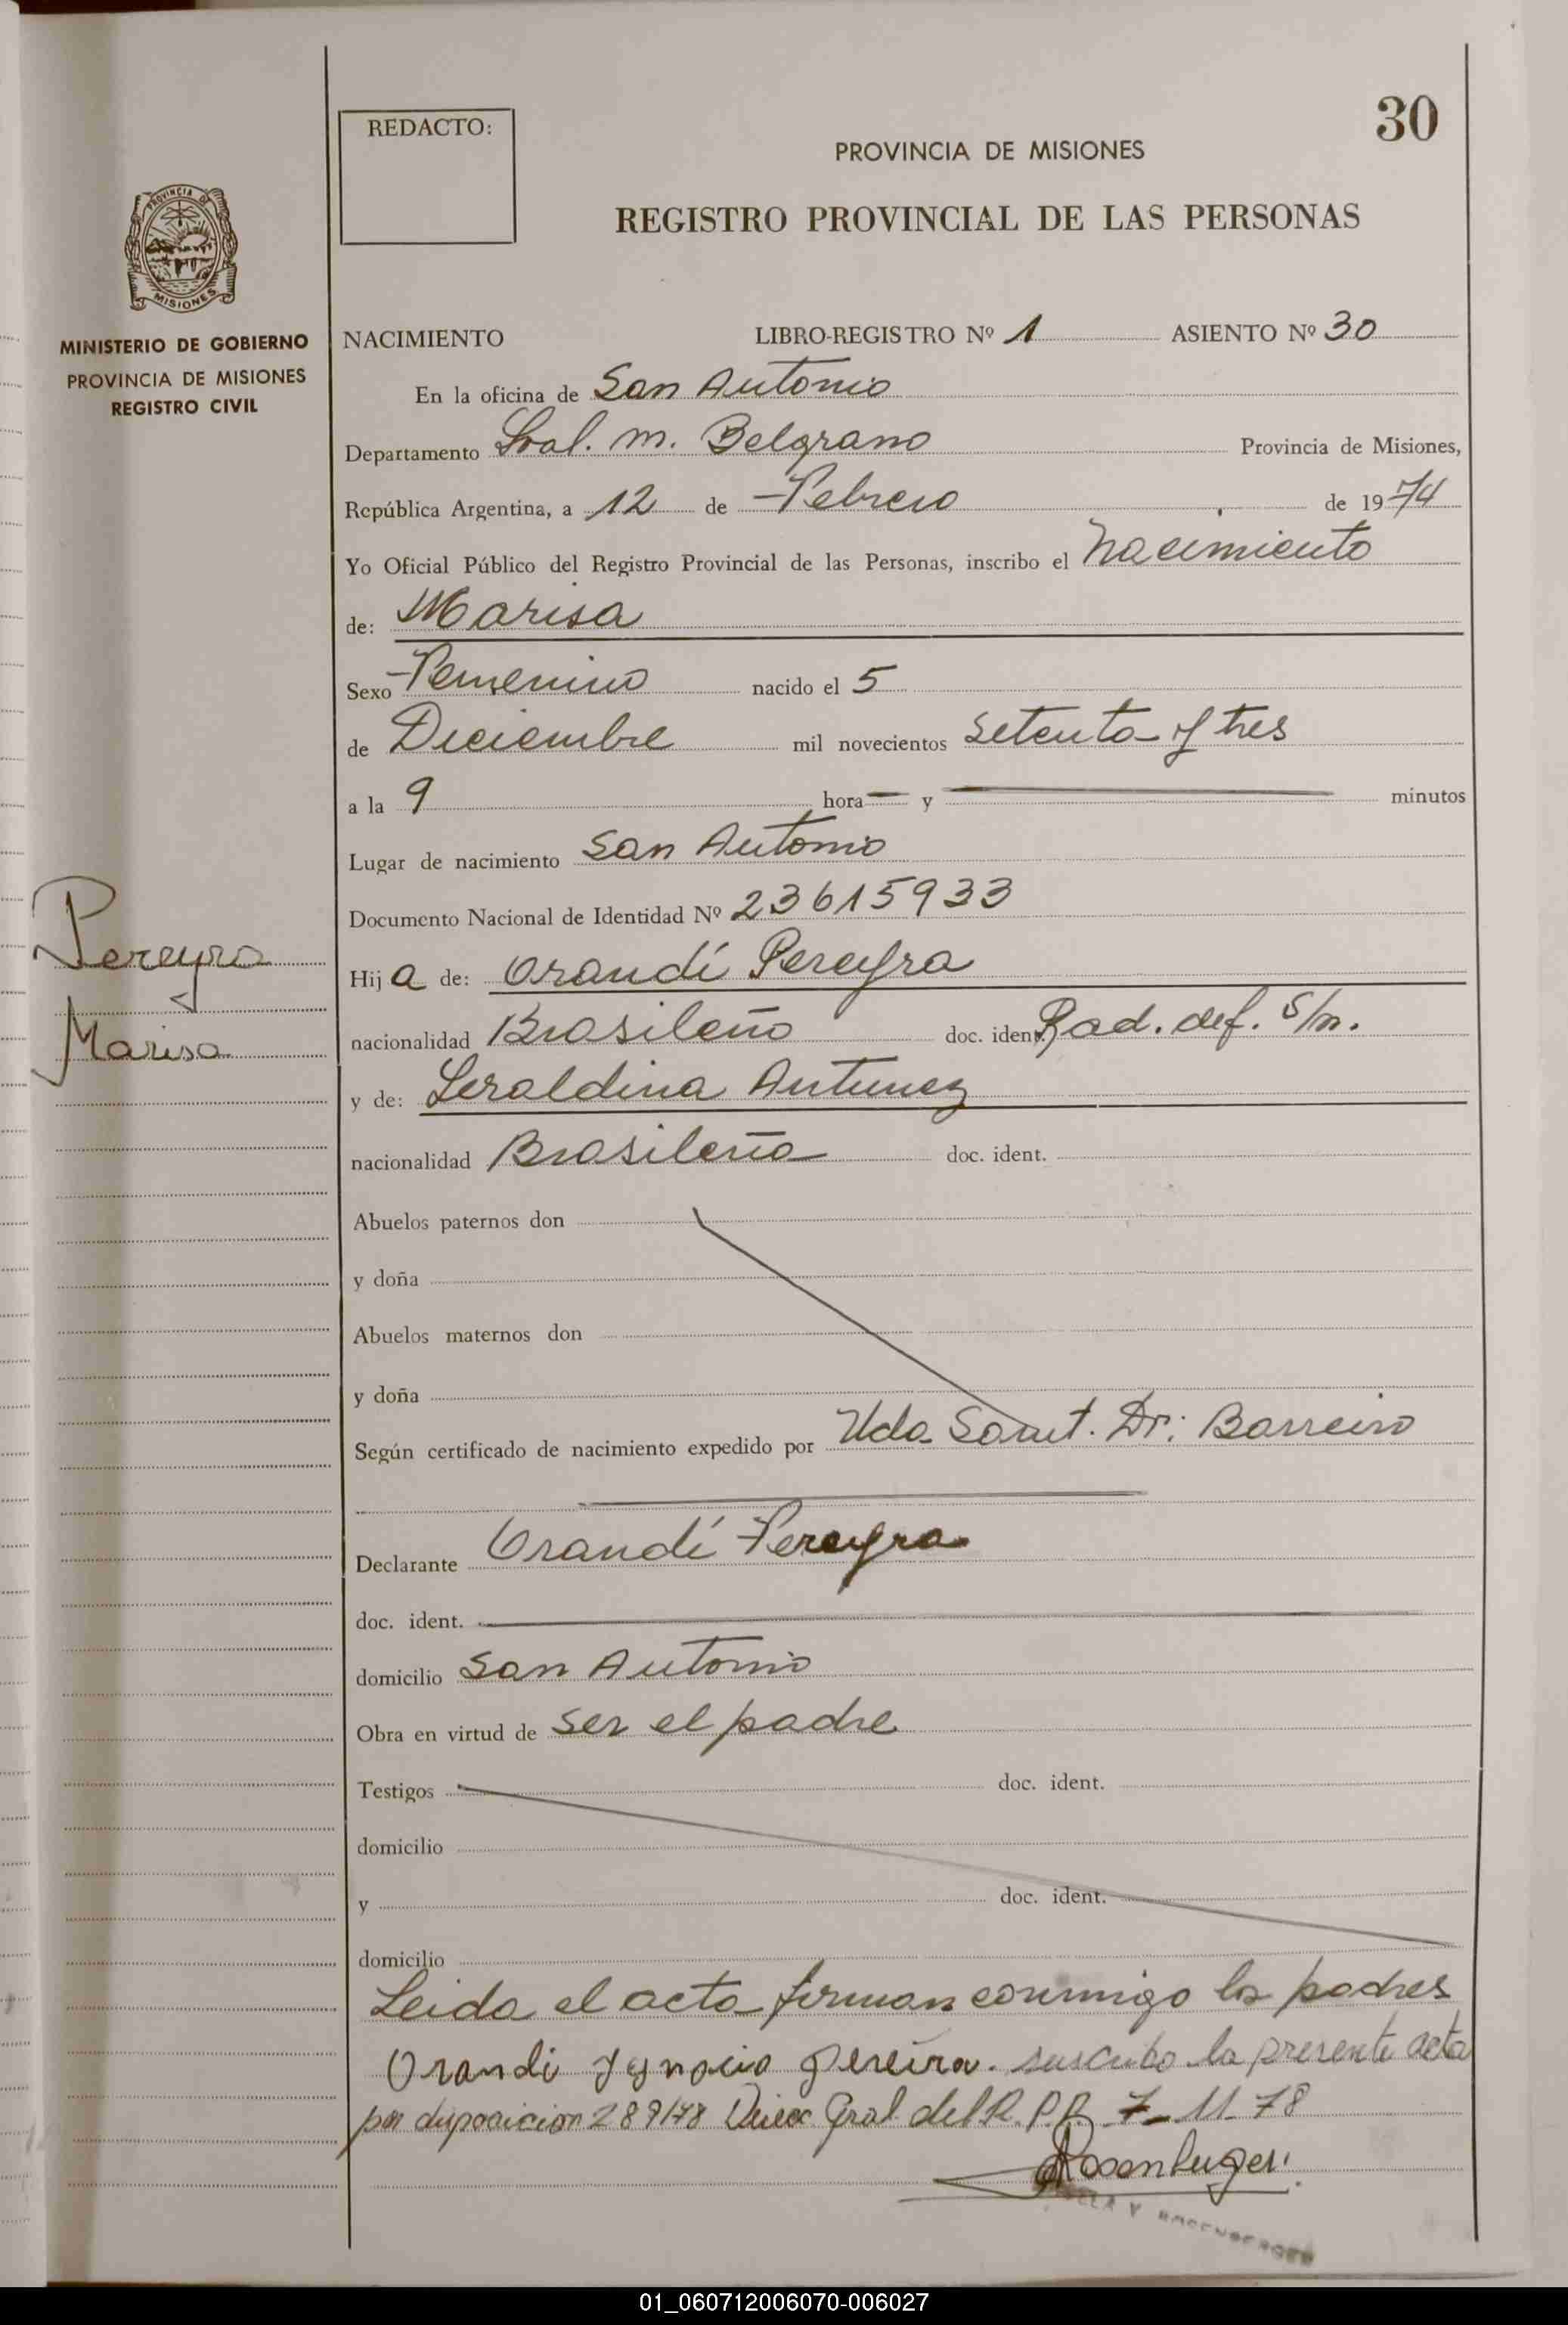 30
REDACTO:
PROVINCIA DE MISIONES
REGISTRO PROVINCIAL DE LAS PERSONAS
PROVINCIA DE
MISIONES
MINISTERIO DE GOBIERNO
PROVINCIA DE MISIONES
REGISTRO CIVIL
NACIMIENTO LIBRO-REGISTRO Nº 1 ASIENTO Nº 30
En la oficina de San Antonio
Departamento Gral. M. Belgrano Provincia de Misiones,
República Argentina, a 12 de Febrero de 1974
Yo Oficial Público del Registro Provincial de las Personas, inscribo el Nacimiento
de: Marisa
Sexo Femenino nacido el 5
de Diciembre mil novecientos setenta y tres
a la 9 hora — y — minutos
Lugar de nacimiento San Antonio
Documento Nacional de Identidad Nº 23615933
Pereyra
Marisa
Hija de: Orandí Pereyra
nacionalidad Brasileño doc. ident. Rad. def. S/n.
y de: Geraldina Antunez
nacionalidad Brasileña doc. ident.
Abuelos paternos don
y doña
Abuelos maternos don
y doña
Según certificado de nacimiento expedido por Uda Sanit. Dr: Barreiro
Declarante Orandí Pereyra
doc. ident.
domicilio San Antonio
Obra en virtud de ser el padre
Testigos doc. ident.
domicilio
y doc. ident.
domicilio
Leida el acta firman conmigo los padres
Orandi Ygnacio Pereira. suscribo la presente acta
por disposicion 289/78 Direc Gral del R.P.P. 7-11-78
Rosenberger
01_060712006070-006027